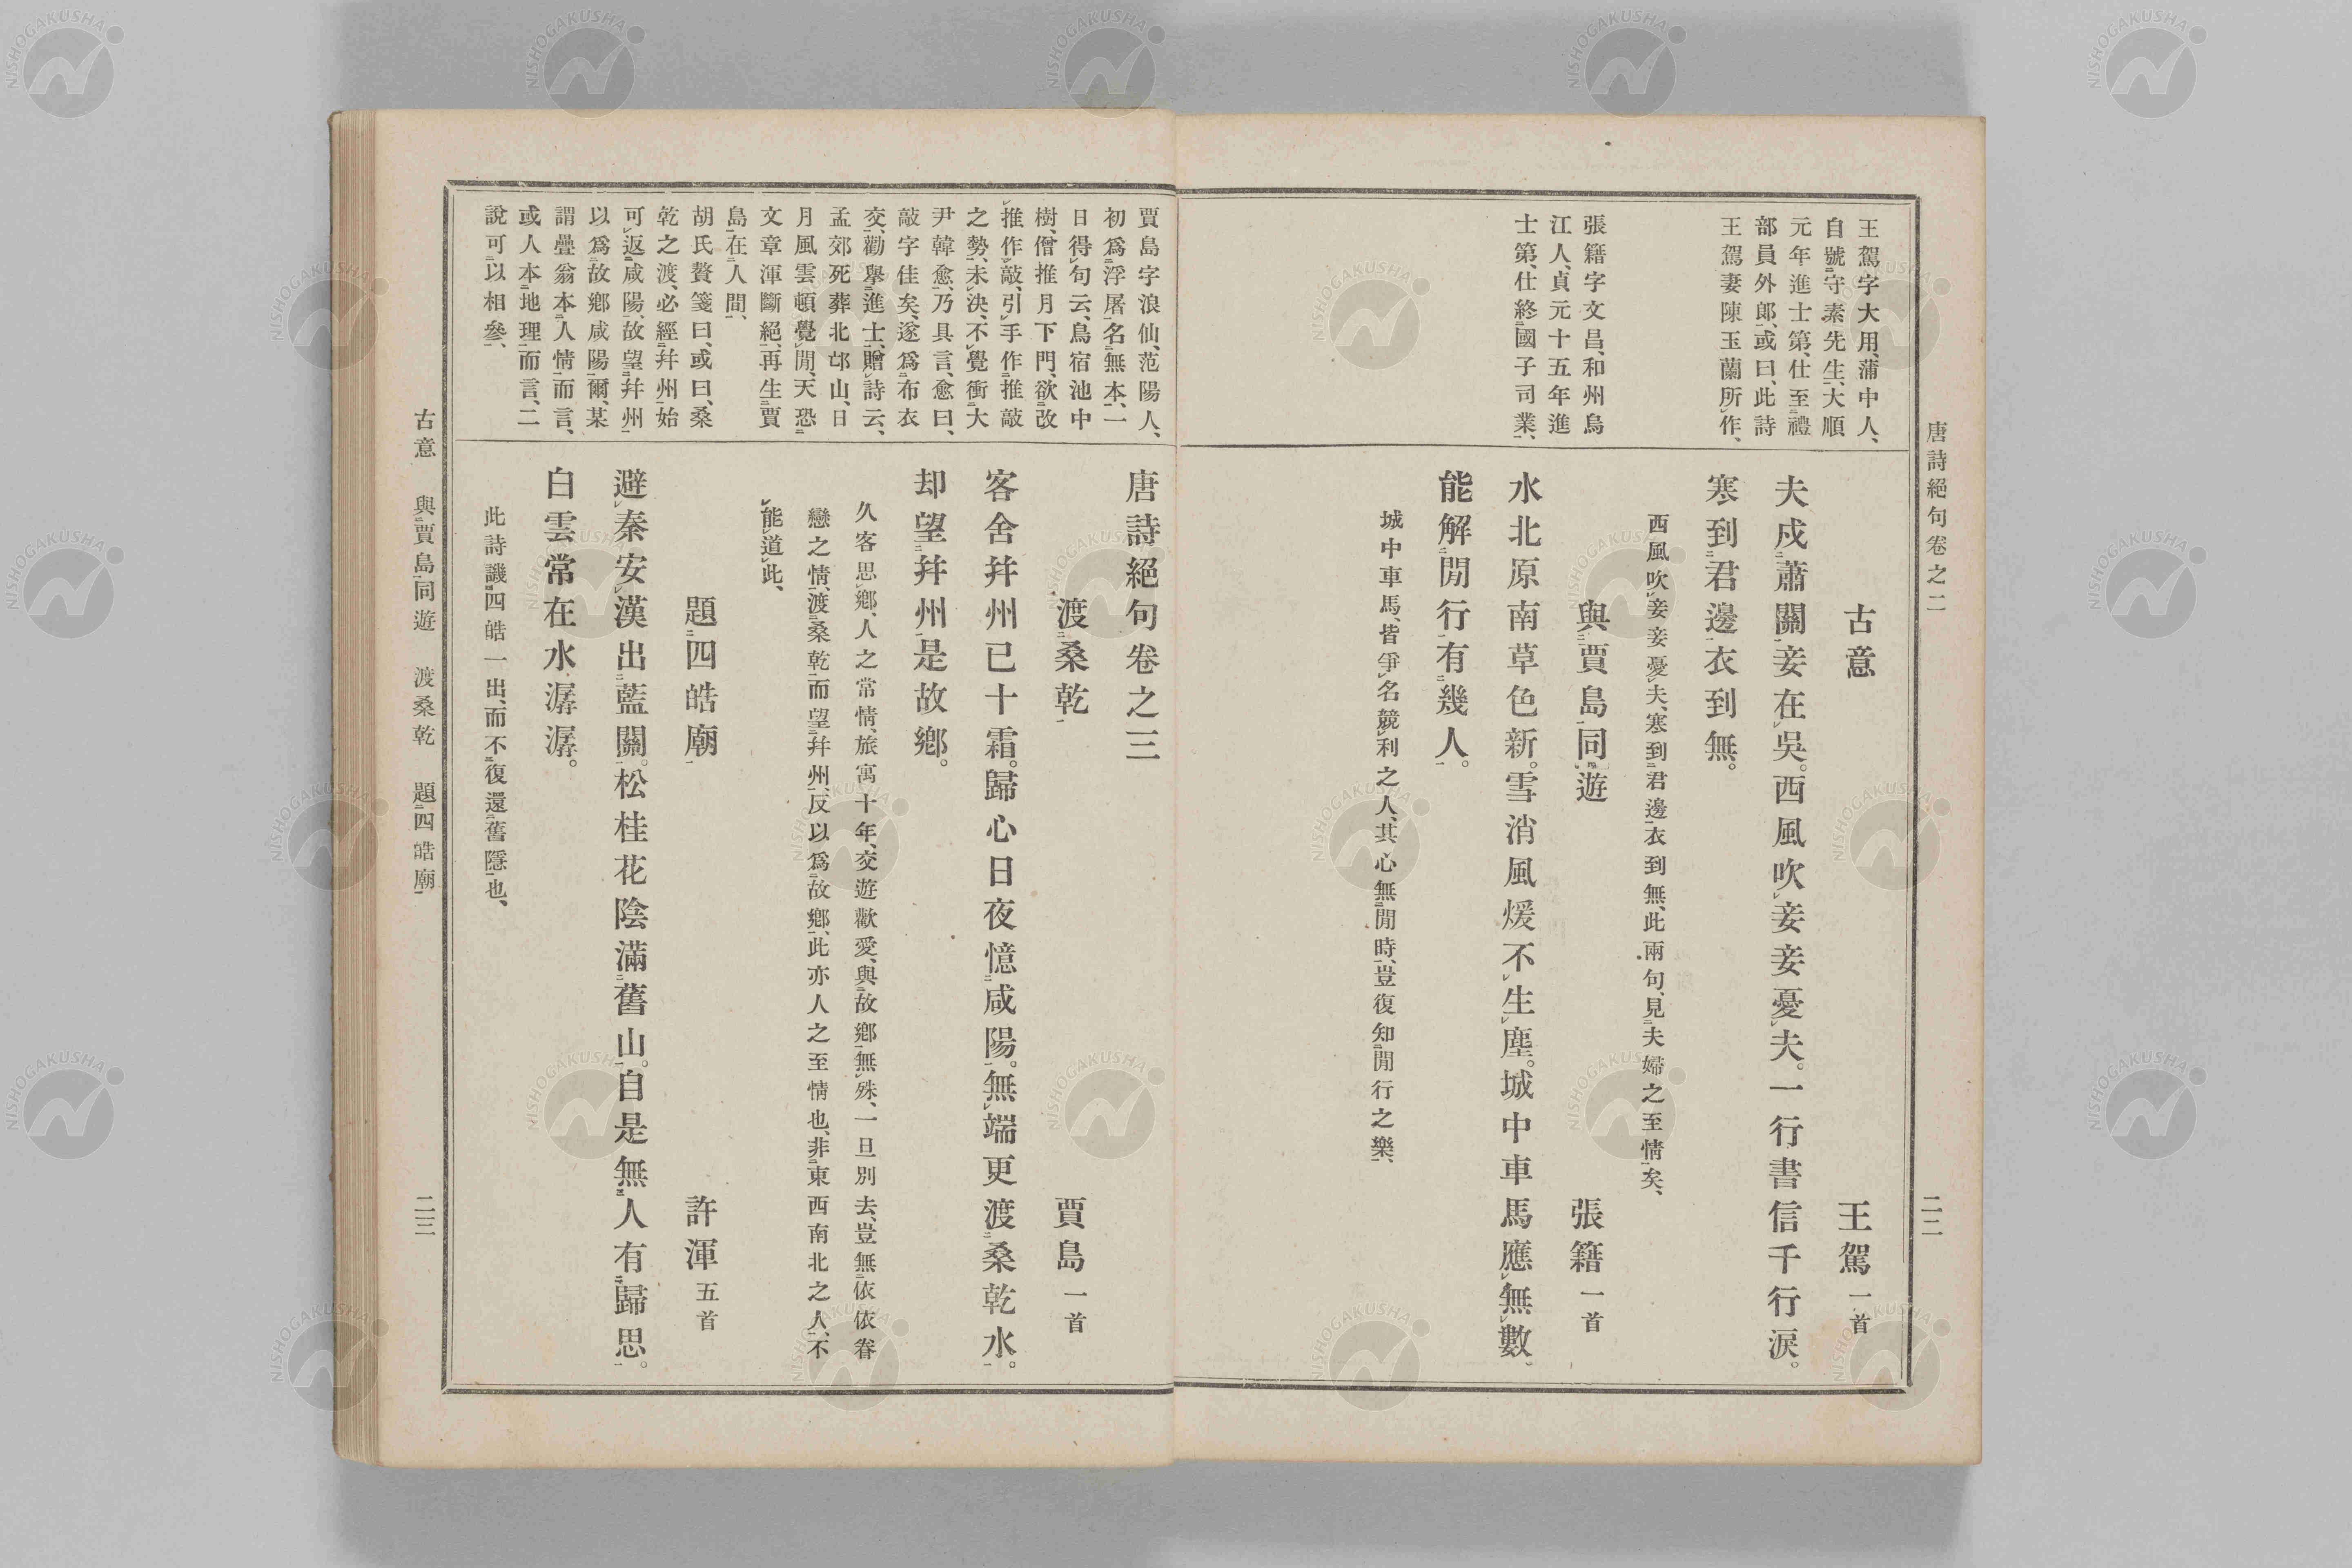 唐詩絕句卷之二
二二
王駕字大用、蒲中人、
自號守素先生、大順
元年進士第、仕至禮
部員外郎、或曰、此詩
王駕妻陳玉蘭所作、
張籍字文昌、和州烏
江人、貞元十五年進
士第、仕終國子司業、
古意 王駕一首
夫戍蕭關妾在吳。西風吹妾妾憂夫。一行書信千行淚。
寒到君邊衣到無。
西風吹妾妾憂夫、寒到君邊衣到無、此兩句、見夫婦之至情矣、
與賈島同遊 張籍一首
水北原南草色新。雪消風煖不生塵。城中車馬應無數。
能解閒行有幾人。
城中車馬、皆爭名競利之人、其心無閒時、豈復知閒行之樂、
賈島字浪仙、范陽人、
初爲浮屠、名無本、一
日得句云、鳥宿池中
樹、僧推月下門、欲改
推作敲、引手作推敲
之勢、未決、不覺衝大
尹韓愈、乃具言、愈曰、
敲字佳矣、遂爲布衣
交、勸舉進士、贈詩云、
孟郊死葬北邙山、日
月風雲頓覺閒、天恐
文章渾斷絕、再生賈
島在人間、
胡氏贅箋曰、或曰、桑
乾之渡、必經幷州始
可返咸陽、故望幷州
以爲故鄉咸陽爾、某
謂疊翁本人情而言、
或人本地理而言、二
說可以相參、
唐詩絕句卷之三
渡桑乾 賈島一首
客舍幷州已十霜。歸心日夜憶咸陽。無端更渡桑乾水。
却望幷州是故鄉。
久客思鄉、人之常情、旅寓十年、交遊歡愛、與故鄉無殊、一旦別去、豈無依依眷
戀之情、渡桑乾而望幷州、反以爲故鄉、此亦人之至情也、非東西南北之人、不
能道此、
題四皓廟 許渾五首
避秦安漢出藍關。松桂花陰滿舊山。自是無人有歸思。
白雲常在水潺潺。
此詩譏四皓一出、而不復還舊隱也、
古意 與賈島同遊 渡桑乾 題四皓廟
二三
NISHOGAKUSHA